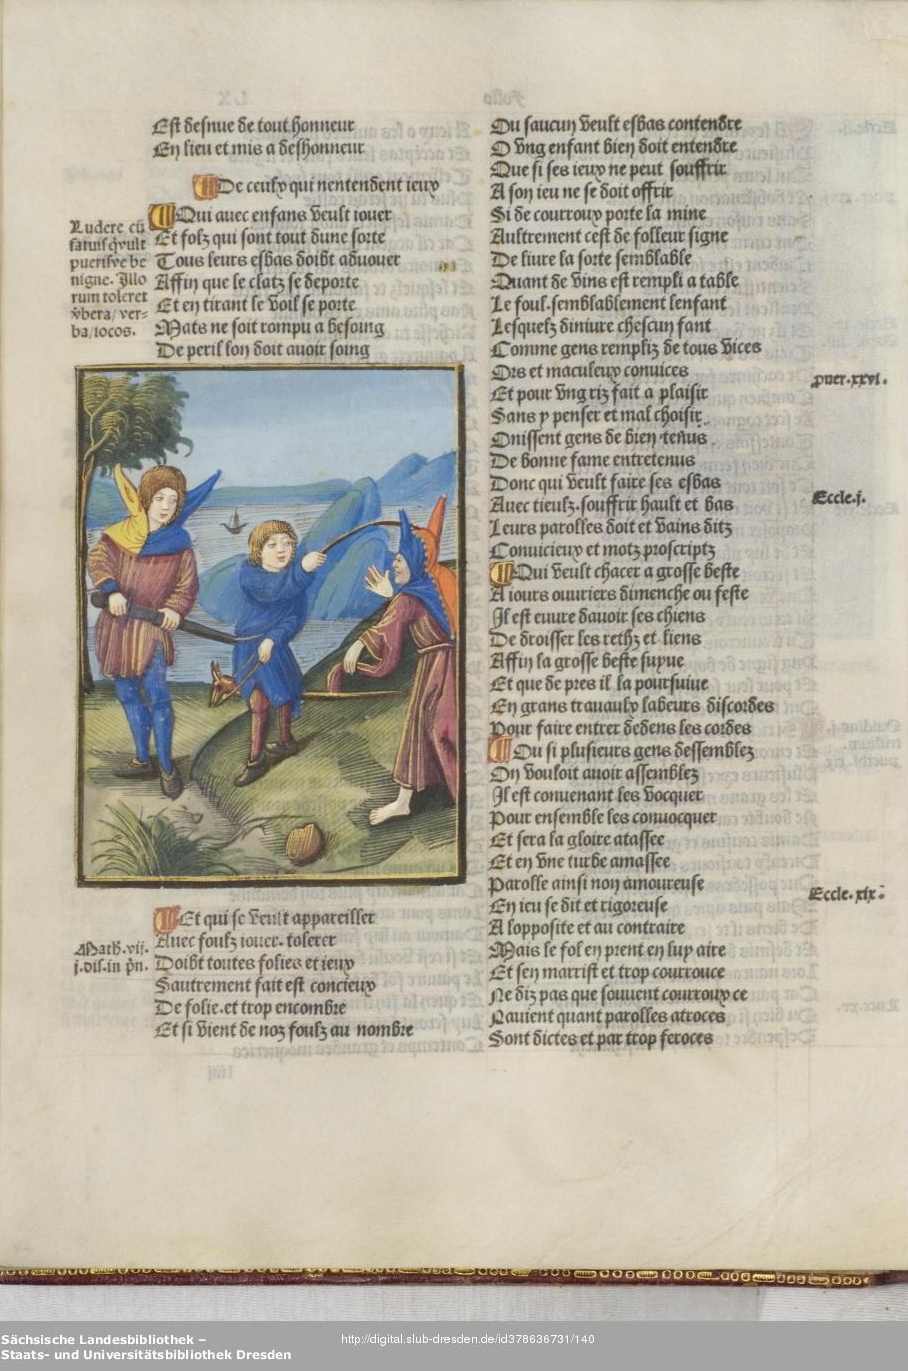 Est desnue de tout honneur
En lieu et mis a deshonneur
De ceulx qui nentendent ieux
Ludere cū
fatuis q̄ vult
puerisve be
nigne. Illo
rum toleret
v̄bera/ ver=
ba/iocos.
Qui auec enfans veult iouer
Et folz qui sont tout dune sorte
Tous leurs esbas doibt aduouer
Affin que le clatz se deporte
Et en tirant le voil se porte
Mats ne soit rompu a besoing
De peril lon doit auoir soing
Et qui se veult appareiller
Math. vij.
j. dis. in pn̄.
Auec foulz iouer. tolerer
Doibt toutes folies et ieux
Sautrement fait est concieux
De folie. et trop encombre
Et si vient de noz foulz au nombre
Ou saucun veult esbas contendre
O vng enfant bien doit entendre
Que si ses ieux ne peut souffrir
A son ieu ne se doit offrir
Si de courroux porte la mine
Aultrement cest de folleur signe
De liure la sorte semblable
Quant de vins est rempli a table
Le foul. semblablement lenfant
Lesquelz diniure chescun fant
Comme gens rempliz de tous vices
Ors et maculeux conuices
Et pour vng riz fait a plaisir
prouer. xxvi.
Sans y penser et mal choisir
Onissent gens de bien tenus
De bonne fame entretenus
Donc qui veult faire ses esbas
Eccle. j.
Auec tieulz. souffrir hault et bas
Leurs parolles doit et vains ditz
Conuicieux et motz proscriptz
Qui veult chacer a grosse beste
A iours ouuriers dimenche ou feste
Il est euure dauoir ses chiens
De droisser les rethz et liens
Affin la grosse beste suyue
Et que de pres il la poursuiue
En grans trauaulx labeurs discordes
Pour faire entrer dedens les cordes
Ou si plusieurs gens dessemblez
On vouloit auoir assemblez
Il est conuenant les vocquer
Pour ensemble les conuocquer
Et sera la gloire atassee
Et en vne turbe amassee
Parolle ainsi non amoureuse
Eccle. xix.
En ieu se dit et rigoreuse
A lopposite et au contraire
Mais le fol en prent en luy aire
Et sen marrist et trop courrouce
Ne diz pas que souuent courroux ce
Nauient quant parolles atroces
Sont dictes et par trop feroces
Sächsische Landesbibliothek –
Staats- und Universitätsbibliothek Dresden
http://digital.slub-dresden.de/id378636731/140